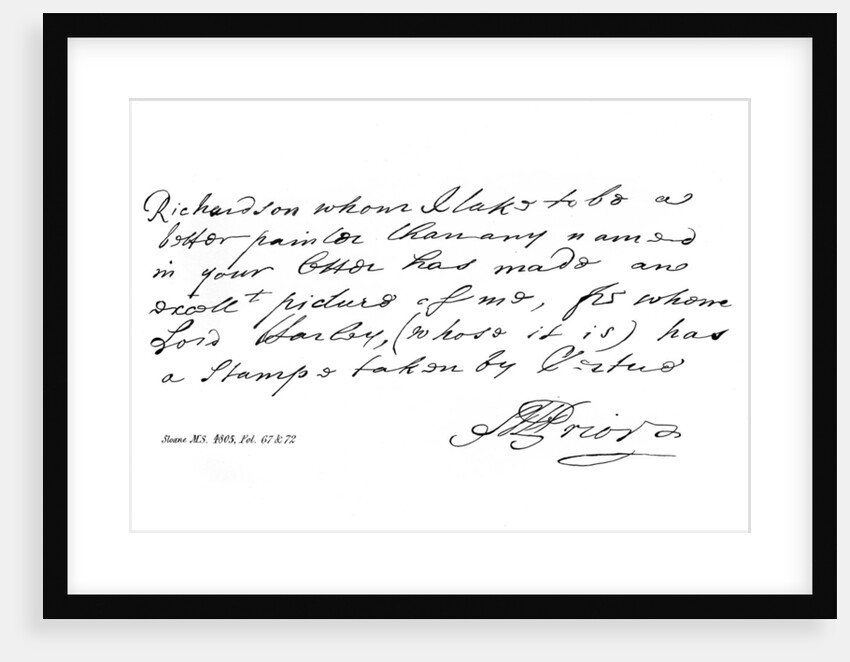 Richardson whom I take to be a
better painter than any named
in your letter has made an
excellt picture of me, from whom
Lord Harley, (whose it is) has
a Stamp taken by Vertue
MPrior
Sloane MS. 4805, Fol. 67 & 72